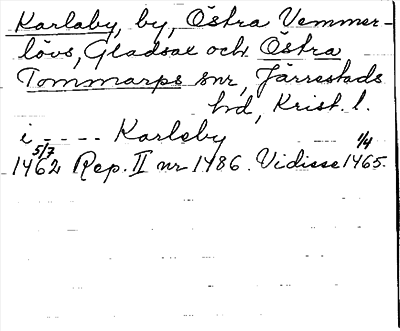 Karlaby, by, Östra Vemmer-
lövs, Gladsax och Östra
Tommarps snr, Järrestads
hd, Krist. l.
i - - - - Karleby
5/7 1462 Rep. II nr 1486. Vidisse 1/4 1465.